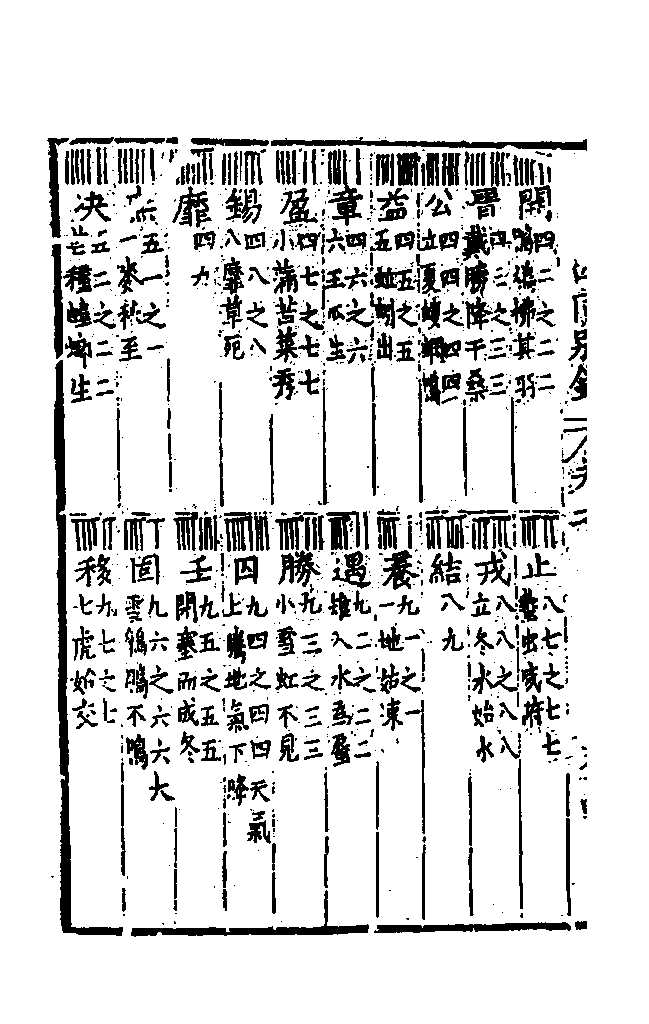 開 四二之二二
鳴鳩拂其羽
晉 四三之三三
戴勝降于桑
公 四四之四四
立夏 螻蟈鳴
益 四五之五
五 蚯蚓出
章 四六之六
六 王瓜生
盈 四七之七七
小滿 苦菜秀
錫 四八之八
八 靡草死
靡 四九
五一之一
一 麥秋至
決 五二之二二
芒種 螳螂生
止 八七之七七
蟄虫咸俯
戎 八八之八八
立冬 水始冰
結 八九
養 九一之一
一 地始凍
遇 九二之二二
雉入水爲蜃
勝 九三之三三
小雪 虹不見
囚 九四之四四 天氣
上騰地氣下降
壬 九五之五五
閉塞而成冬
固 九六之六六 大
雪 鶡鴠不鳴
移 九七之七
七 虎始交